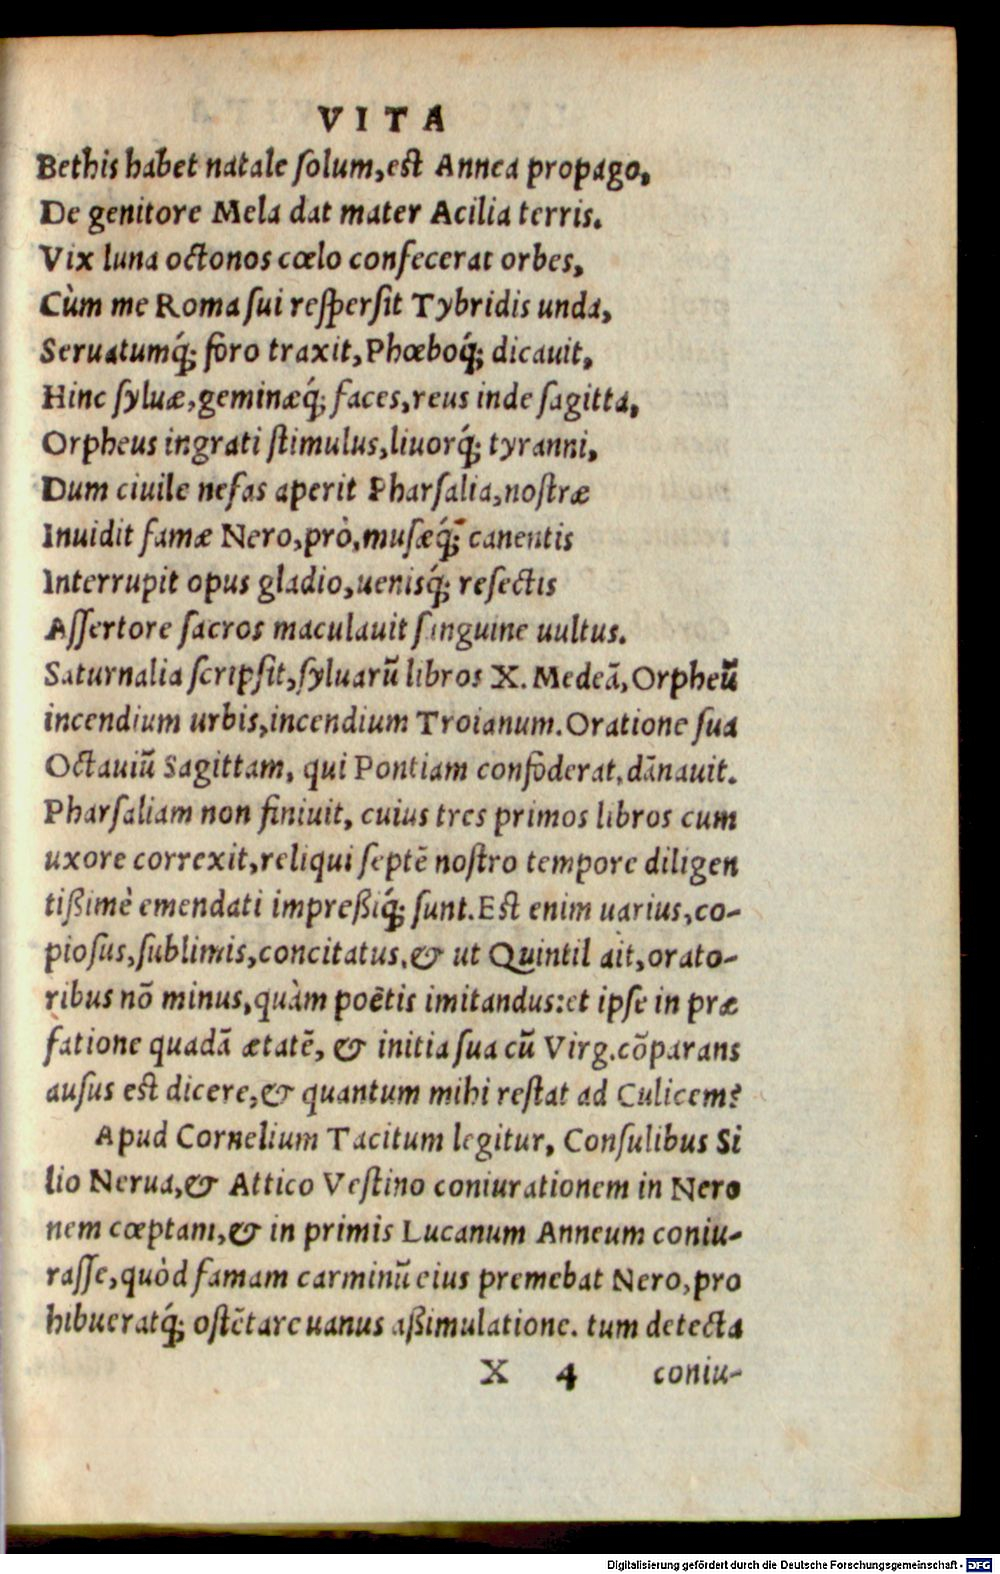 VITA
Bethis habet natale ſolum,eſt Annea propago,
De genitore Mela dat mater Acilia terris.
Vix luna octonos cœlo confecerat orbes,
Cùm me Roma ſui reſperſit Tybridis unda,
Seruatumq́; foro traxit, Phœboq́; dicauit,
Hinc ſyluæ,geminæq́; faces,reus inde ſagitta,
Orpheus ingrati ſtimulus,liuorq́; tyranni,
Dum ciuile nefas aperit Pharſalia,noſtræ
Inuidit famæ Nero,prò,muſæq́; canentis
Interrupit opus gladio,uenisq́; reſectis
Aſſertore ſacros maculauit ſanguine uultus.
Saturnalia ſcripſit,ſyluarũ libros X. Medeã, Orpheũ
incendium urbis,incendium Troianum. Oratione ſua
Octauiũ Sagittam, qui Pontiam confoderat,dãnauit.
Pharſaliam non finiuit, cuius tres primos libros cum
uxore correxit,reliqui ſeptẽ noſtro tempore diligen
tißimè emendati impreßiq́; ſunt. Eſt enim uarius,co-
pioſus,ſublimis,concitatus,& ut Quintil ait,orato-
ribus nõ minus,quàm poëtis imitandus:et ipſe in præ
fatione quadã ætatẽ, & initia ſua cũ Virg.cõparans
auſus eſt dicere,& quantum mihi reſtat ad Culicem?
Apud Cornelium Tacitum legitur, Conſulibus Si
lio Nerua,& Attico Veſtino coniurationem in Nero
nem cœptam,& in primis Lucanum Anneum coniu-
raſſe,quòd famam carminũ eius premebat Nero,pro
hibueratq́; oſtẽtare uanus aßimulatione. tum detecta
X 4 coniu-
Digitalisierung gefördert durch die Deutsche Forschungsgemeinschaft - DFG